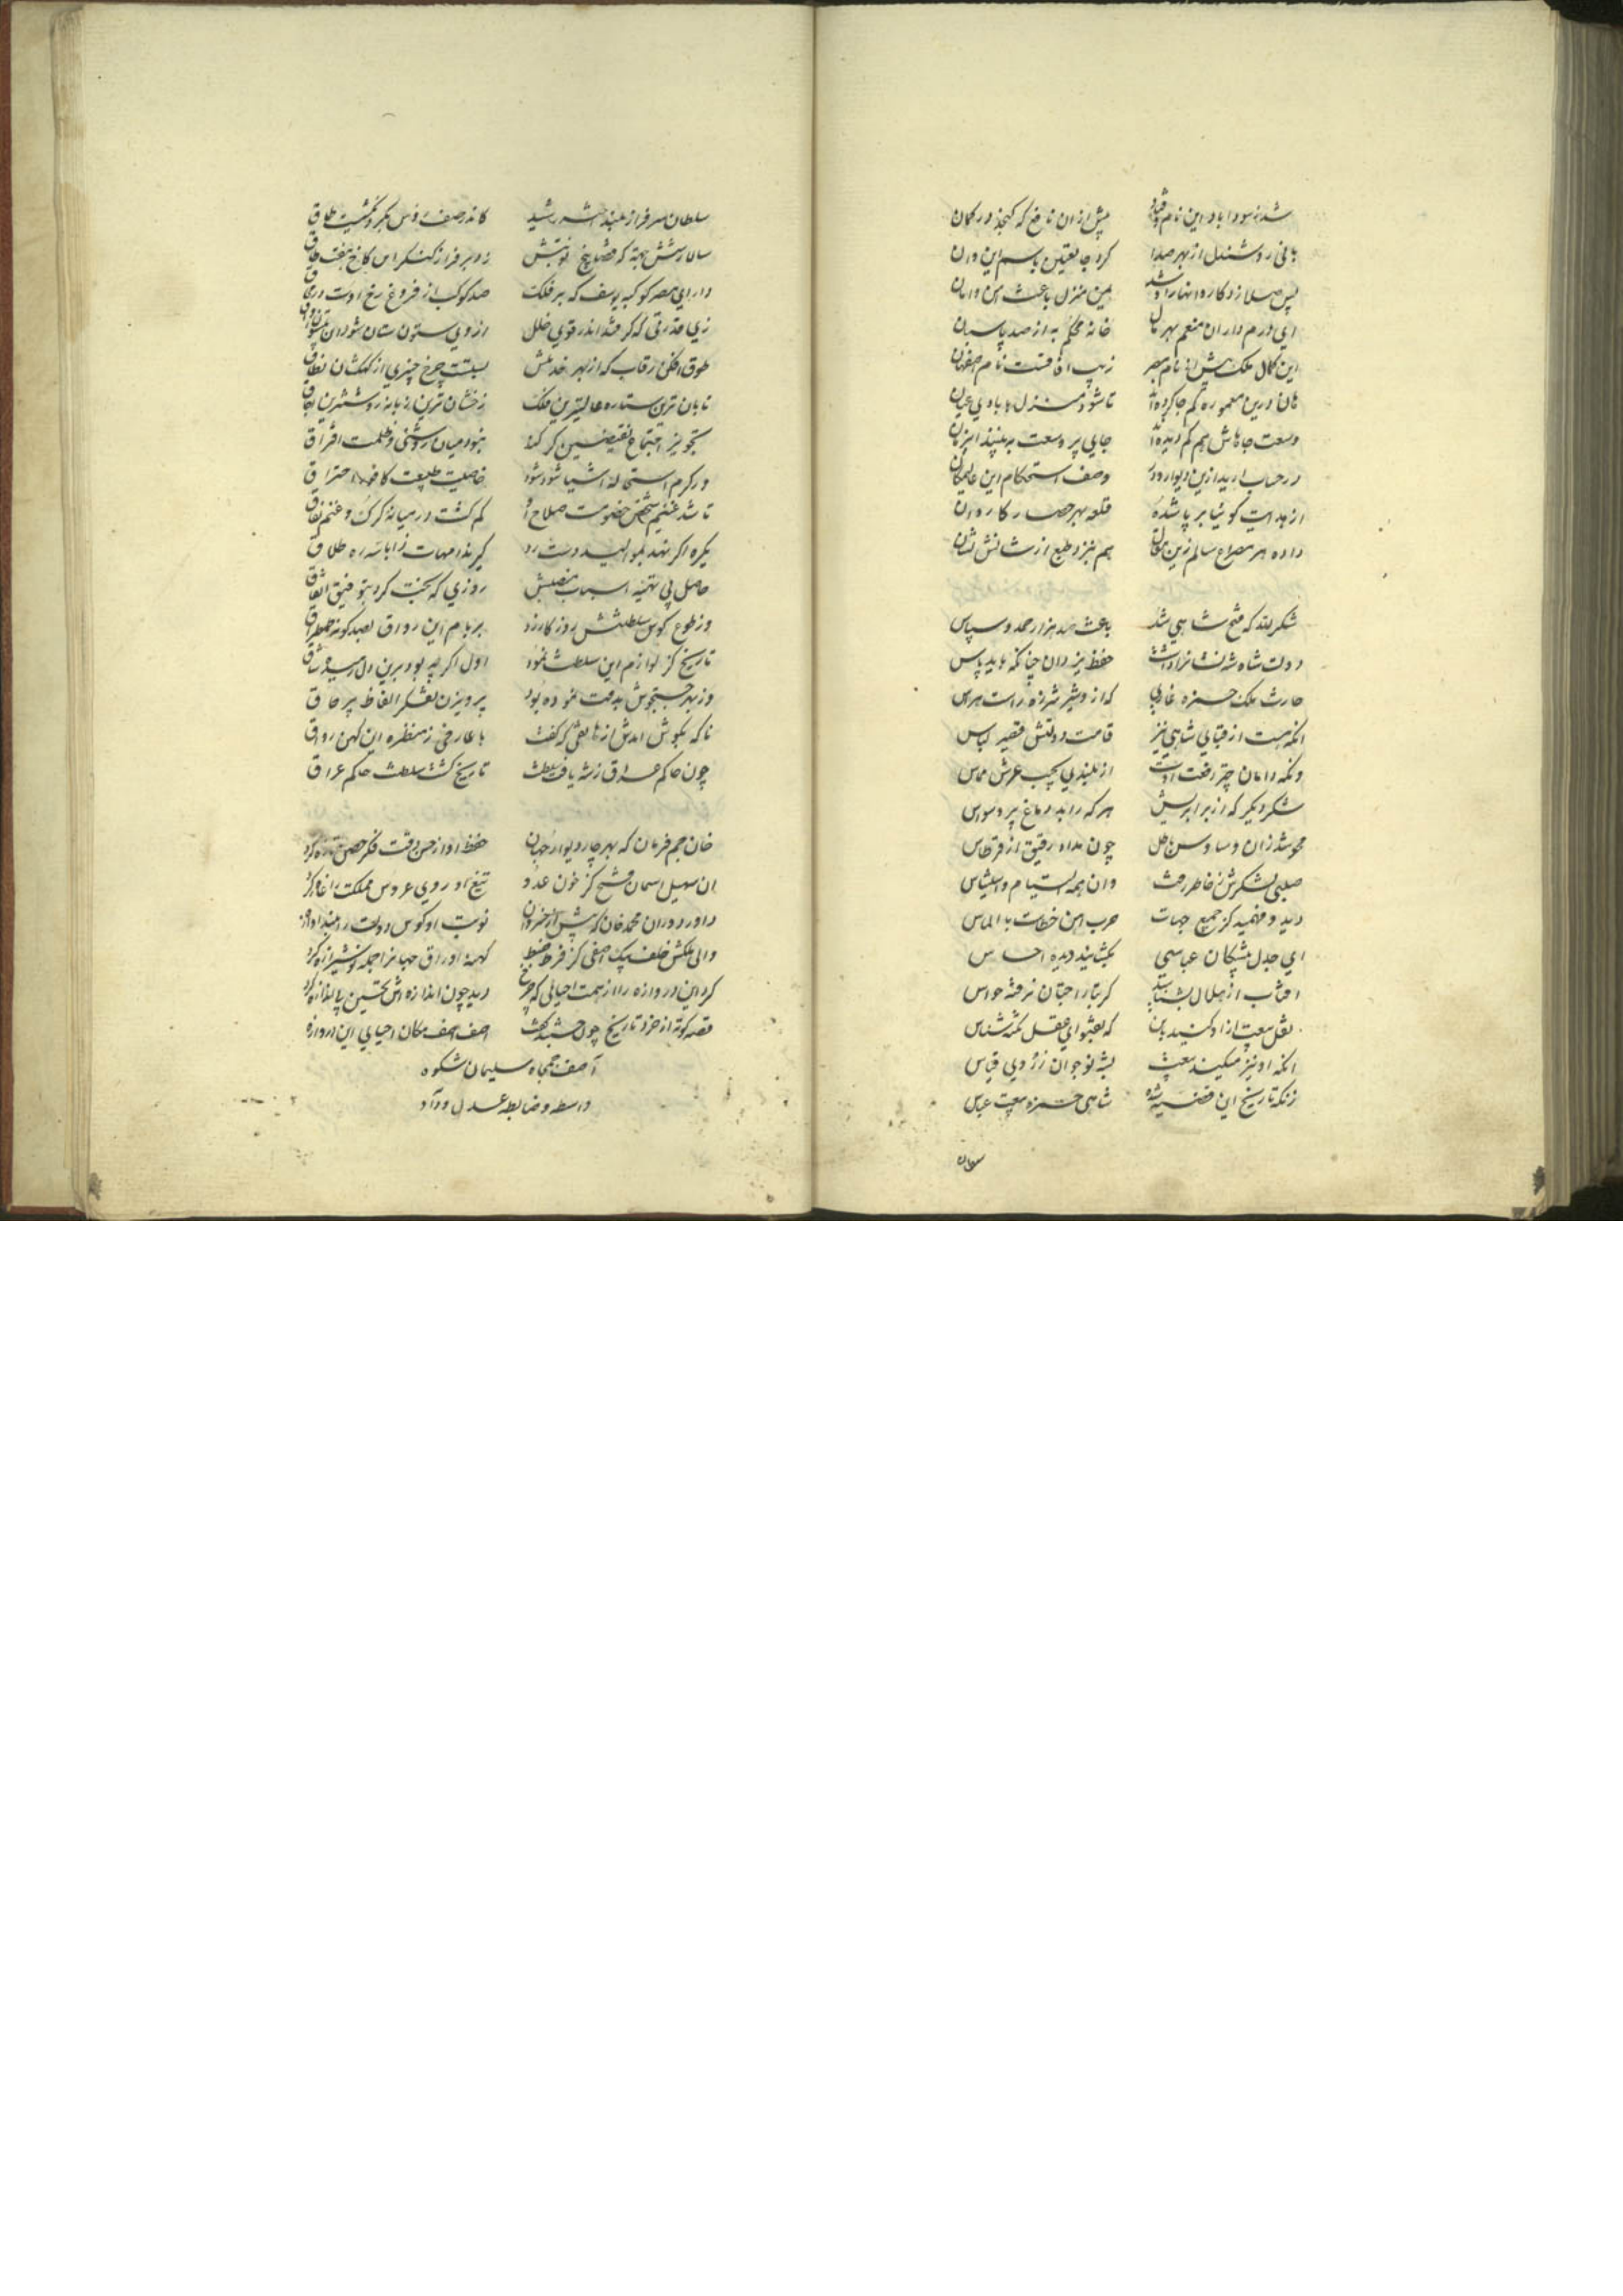 شد ز سودا باد این نام و نشان پیش ازان نافع که کنجد در کمان
بانی روشندل از بهر صدا کرد جا تعیین باسم این و ان
پس صلا زد کاروانها را و شد یمن منزل باعث امن و امان
ای درم داران منعم بهر مال خانه محکم به از صد پاسبان
این کمال ملک پیش از نام مصر زیب افت نام اصفهان
هان درین معموره کم جا کرده‌اند تا شود منزل ما بادی عیان
وسعت جاهاش هم کم دیده‌اند جایی پر وسعت به بینند این زمان
در حساب ارید ازین دیوار و در وصف استحکام این عالیمکان
از هدایت کوئیا بر پا شده قلعه بهر حصار کاروان
داده هر مصراع سالم زین مقال هم بنزد طبع از سالش نشان
شکر لله که فتح شاهی شد باعث صد هزار حمد و سپاس
دولت شاه شه نشانرا داشت حفظ یزدان چنانکه باید پاس
حارث ملک حمزه غازی که ازو شیر شرزه راست هراس
انکه هست از قبای شاهی نیز قامت دولتش قصیر لباس
ونکه دامان چتر رفعت اوست از بلندی بجیب عرش مماس
شکر دیگر که از برابریش هر که را بد دماغ پر وسواس
محو شد زان وساوس باطل چون مداد رقیق از قرطاس
صلبی لشکرش ز خاطر رفت وان همه التیام واستیناس
دید و فهمید کز جمیع جهات حرب اهن خطاست با الماس
ای جدل پیشکان عباسی بگشایید دیده احساس
افتاب از هلال بشناسید کر بتاراجتان نرفته حواس
نقل بیعت ازو کنید بان که بفتوای عقل نکته شناس
انکه او نیز میکند بیعت بشه نوجوان ز روی قیاس
زنکه تاریخ این قضیه شده شاهی حمزه بیعت عباس
سلطان
سلطان سرفراز بلند اختر رشید کاندر صف رؤس بکبر و بکشیت طاق
سالار شش جهة که قضا پنج نوبتش زد بر فراز کنکر این کاخ هفت طاق
دارای مصر کوکبه یوسف که بر فلک صد کوکب از فروغ رخ اوست در
زیبا قدرتی که کر فتد اندر قوی خلل از وی ستون ستان شود ان
طوق افکن رقاب که از بهر خدمتش بستست چرخ چنبری از کهکشان نطاق
تابان ترین ستاره عالیترین فلک رخشان ترین زبانه روشنترین
تجویز اجتماع نقیضین کر کند نبود میان روشنی و ظلمت افتراق
ور کرم استحاله اشیا شود شود خاصیت طبیعت کافور احتراق
تا شد غنیم شخص خصومت صلاح او کم کشت در میانه کرک و غنم نفاق
یکره اکر نهد بموالید دست رد کیرند امهات ز ابا سه ره طلاق
حاصل پی تهیه اسباب منصبش روزی که بخت کرد بتوفیق اتفاق
وز طوع کوس سلطنتش روزکار زد بر بام این رواق بصد کونه طمطراق
تاریخ کز لوازم این سلطنت نمود اول اکر چه بود برین دل بسی شاق
وز بهر جستجوش بدقت نموده بود پرویزن تفکر الفاظ پر محاق
ناکه بکوش امدش از هاتفی که گفت با عارفی ز منظره این کهن رواق
چون حاکم عراق ز شه یافت سلطنت تاریخ کشت سلطنت حاکم عراق
خان جم فرمان که بهر چار دیوار جهان حفظ او از حسن دقت فکر حصن تازه کرد
ان سهیل اسمان فتح کز خون عدو تیغ او روی عروس مملکت را غازه کرد
داور دوران محمد خان که پیش از خسروان نوبت او کوس دولت را بلند اوازه
والی ملکش خلف بیک اصفی کز فرط ضبط کهنه اوراق جهانرا جمله نو شیرازه کرد
کرد این دروازه را از همت احیائی که چرخ دید چون اندازه اش تحسین بی اندازه کرد
قصه کوته از خرد تاریخ چون جستند گفت اصف اصف مکان احیای این دروازه
آصف جمجاه سلیمان شکوه
واسطه و ضابطه عدل و داد